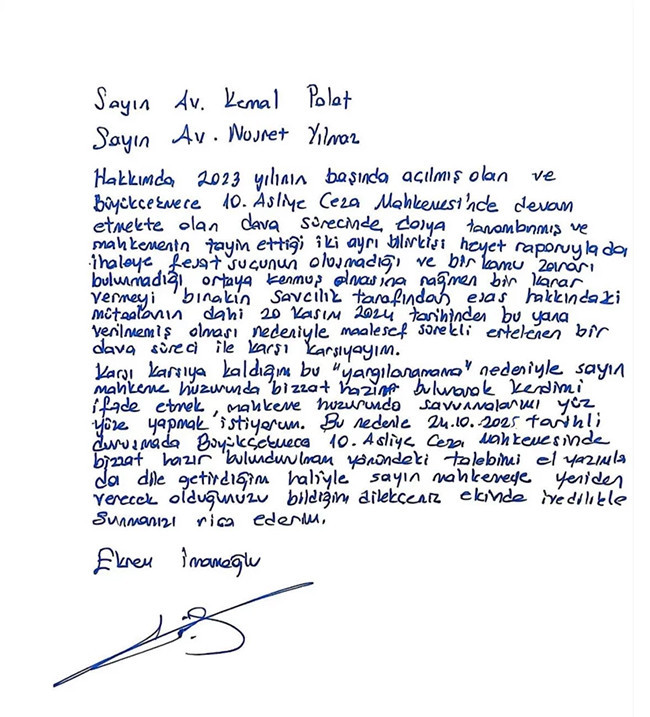 Sayın Av. Kemal Polat
Sayın Av. Nusret Yılmaz
Hakkımda 2023 yılının başında açılmış olan ve
Büyükçekmece 10. Asliye Ceza Mahkemesi'nde devam
etmekte olan dava sürecinde, dosya tamamlanmış ve
mahkemenin tayin ettiği iki ayrı bilirkişi heyet raporuyla da,
ihaleye fesat suçunun oluşmadığı ve bir kamu zararı
bulunmadığı ortaya konmuş olmasına rağmen bir karar
vermeyi bırakın savcılık tarafından esas hakkındaki
mütaalanın dahi 20 Kasım 2024 tarihinden bu yana
verilmemiş olması nedeniyle maalesef sürekli ertelenen bir
dava süreci ile karşı karşıyayım.
Karşı karşıya kaldığım bu "yargılanamama" nedeniyle sayın
mahkeme huzurunda bizzat hazır bulunarak kendimi
ifade etmek, mahkeme huzurunda savunmalarımı yüz
yüze yapmak istiyorum. Bu nedenle 24.10.2025 tarihli
duruşmada Büyükçekmece 10. Asliye Ceza Mahkemesinde
bizzat hazır bulundurulmam yönündeki talebimi el yazımla
da dile getirdiğim haliyle sayın mahkemeye yeniden
verecek olduğunuzu bildiğim dilekçeniz ekinde ivedilikle
sunmanızı rica ederim.
Ekrem İmamoğlu